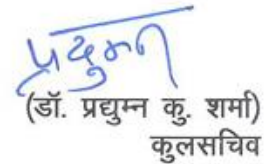 प्रद्युम्न
(डॉ. प्रद्युम्न कु. शर्मा)
कुलसचिव